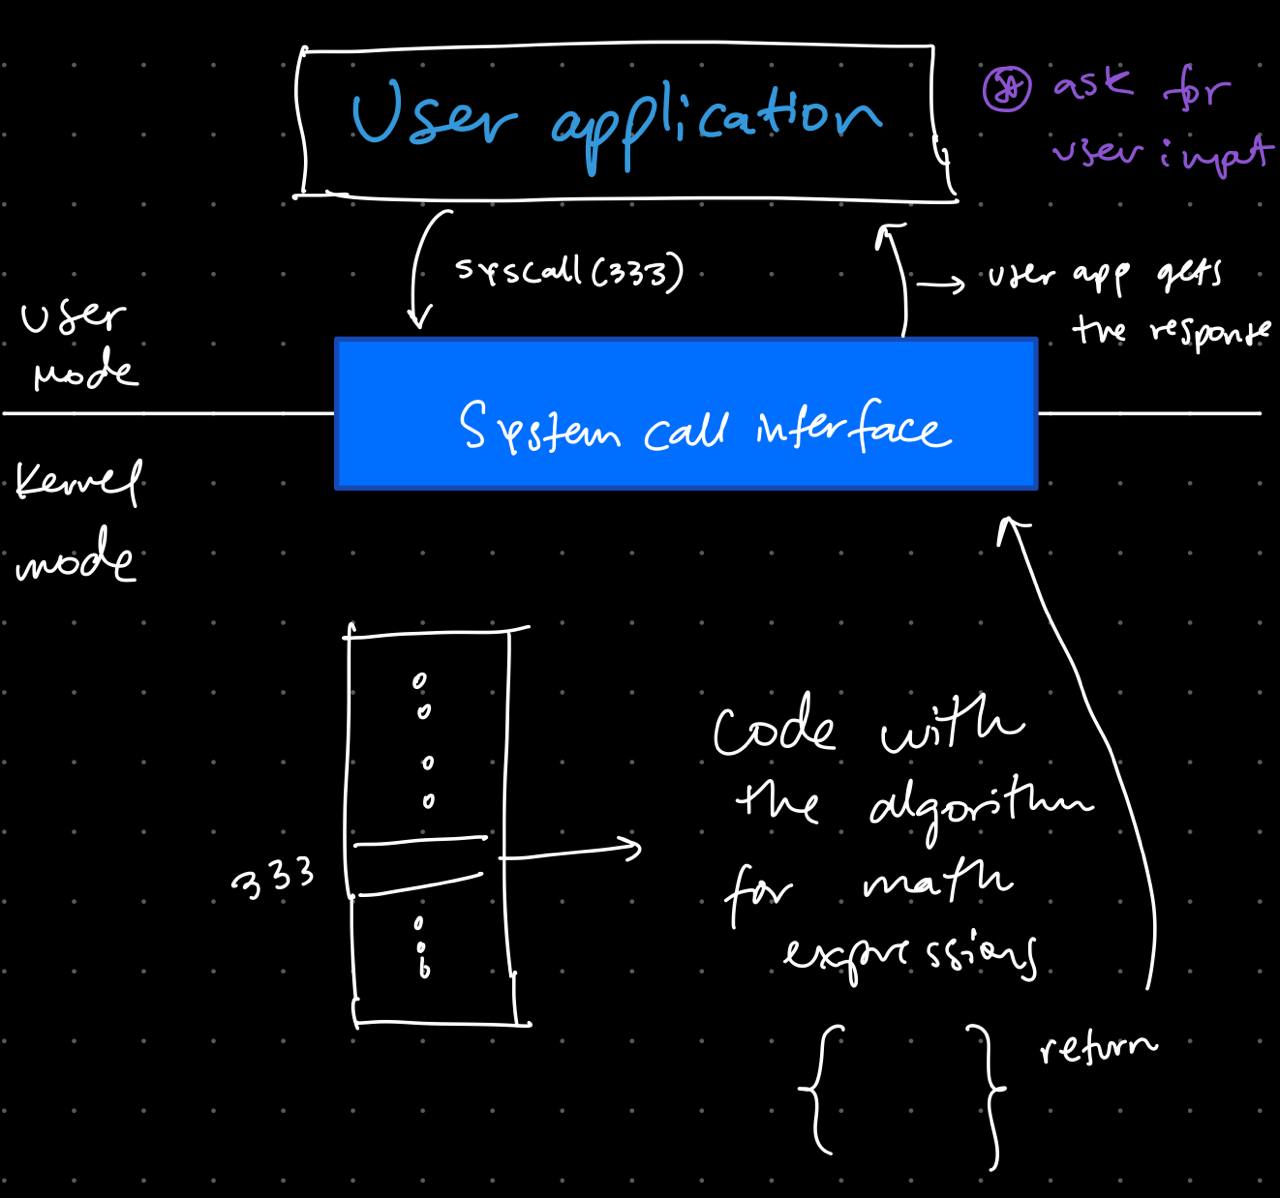 User application
⊛ ask for
user input
syscall(333)
user app gets
the response
User
Mode
System call interface
Kernel
mode
333
Code with
the algorithm
for math
expressions
{ }
return